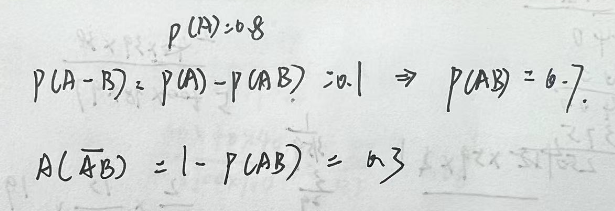 P(A)=0.8
P(A-B)=P(A)-P(AB)=0.1 ⇒ P(AB)=0.7.
A(\overline{A}B)=1-P(AB)=0.3